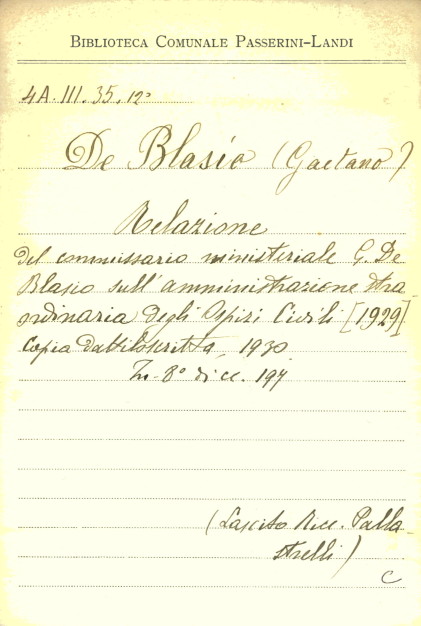 BIBLIOTECA COMUNALE PASSERINI-LANDI
4A. III. 35. 12°
De Blasio (Gaetano)
Relazione
del commissario ministeriale G. De
Blasio sull'amministrazione stra
ordinaria degli Ospizi Civili [1929]
Copia dattiloscritta, 1930
In-8° di cc. 197
(Lascito Palla
strelli)
C